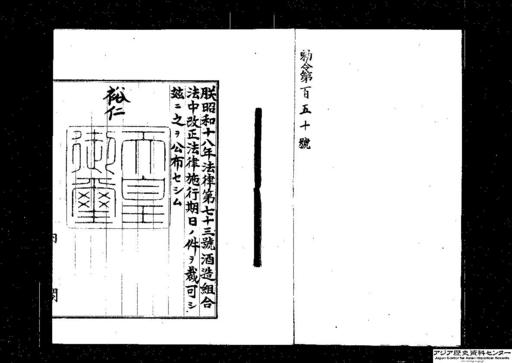 勅令第百五十號
朕昭和十八年法律第七十三號酒造組合
法中改正法律施行期日ノ件ヲ裁可シ
玆ニ之ヲ公布セシム
裕仁
天皇
御璽
内
閣
アジア歴史資料センター
Japan Center for Asian Historical Records